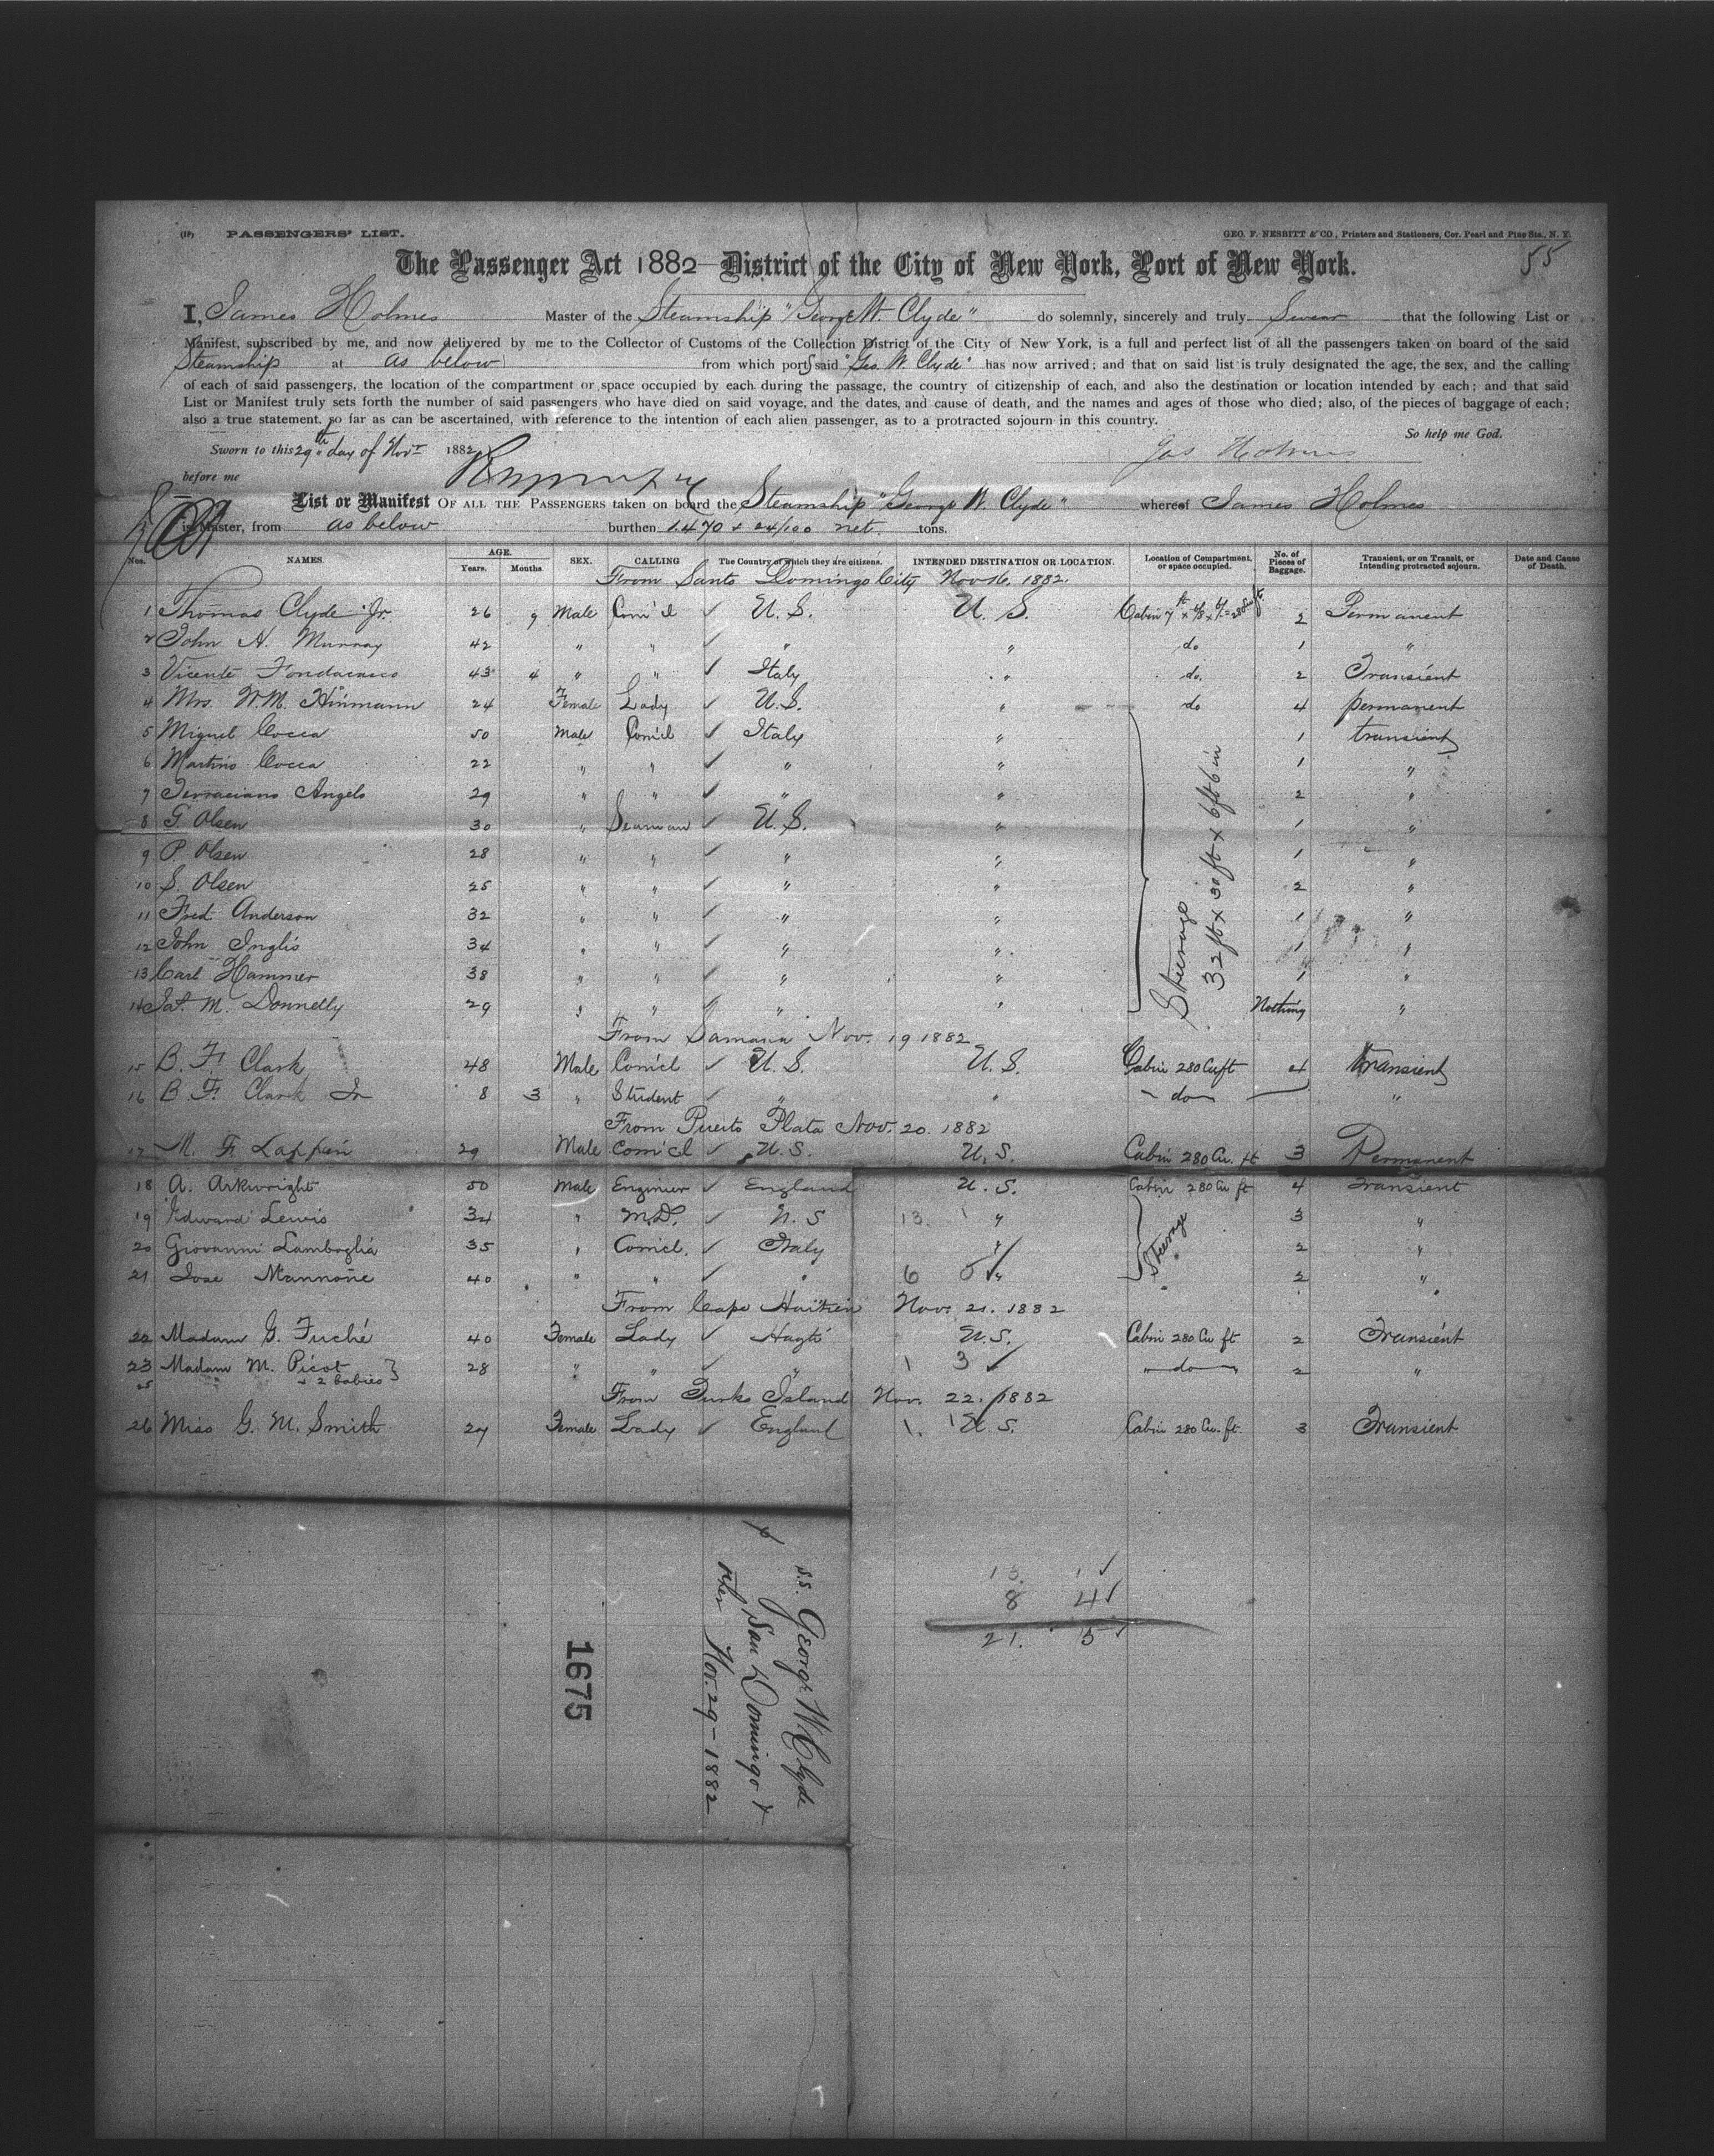 (19) PASSENGERS' LIST. GEO. F. NESBITT & CO., Printers and Stationers, Cor. Pearl and Pine Sts., N. Y.
The Passenger Act 1882 District of the City of New York, Port of New York. 55
I, James Holmes Master of the Steamship "George W. Clyde" do solemnly, sincerely and truly Swear that the following List or
Manifest, subscribed by me, and now delivered by me to the Collector of Customs of the Collection District of the City of New York, is a full and perfect list of all the passengers taken on board of the said
Steamship at as below from which ports said "Geo. W. Clyde" has now arrived; and that on said list is truly designated the age, the sex, and the calling
of each of said passengers, the location of the compartment or space occupied by each during the passage, the country of citizenship of each, and also the destination or location intended by each; and that said
List or Manifest truly sets forth the number of said passengers who have died on said voyage, and the dates, and cause of death, and the names and ages of those who died; also, of the pieces of baggage of each;
also a true statement, so far as can be ascertained, with reference to the intention of each alien passenger, as to a protracted sojourn in this country.
So help me God.
Sworn to this 29th day of Nov 1882 Jas Holmes
before me
List or Manifest OF ALL THE PASSENGERS taken on board the Steamship "George W. Clyde" whereof James Holmes
is Master, from as below burthen 1470 & 24/100 net tons.
Nos. NAMES. AGE. Years. Months. SEX. CALLING The Country of which they are citizens. INTENDED DESTINATION OR LOCATION. Location of Compartment, or space occupied. No. of Pieces of Baggage. Transient, or on Transit, or Intending protracted sojourn. Date and Cause of Death.
From Santo Domingo City Nov 16, 1882.
1 Thomas Clyde Jr. 26 9 Male Com'cl ✓ U. S. U. S. Cabin 2 Permanent
2 John A. Murray 42 " " " " do 1 "
3 Vicente Fondacaro 43 4 " " ✓ Italy " do. 2 Transient
4 Mrs. W. M. Hinmann 24 Female Lady ✓ U. S. " do 4 permanent
5 Miguel Cocca 50 Male Com'cl ✓ Italy " 1 transient
6 Martino Cocca 22 " " ✓ " " 1 "
7 Terraciano Angelo 29 " " ✓ " " 2 "
8 G Olsen 30 " Seaman ✓ U. S. " 1 "
9 P Olsen 28 " " ✓ " " 1 "
10 S. Olsen 25 " " ✓ " " 2 "
11 Fred. Anderson 32 " " ✓ " " 1 "
12 John Inglis 34 " " ✓ " " 1 "
13 Carl Hammer 38 " " ✓ " " 1 "
14 Pat. M. Donnelly 29 " " " " " Nothing "
Steerage
32 ft x 30 ft x 6 ft 6 in
From Samana Nov. 19 1882
15 B. F. Clark 48 Male Com'cl ✓ U. S. U. S. Cabin 280 Cu ft 4 transient
16 B. F. Clark Jr 8 3 " Student ✓ " " do "
From Puerto Plata Nov. 20. 1882
17 M. F. Lappin 29 Male Com'cl ✓ U. S. U. S. Cabin 280 Cu. ft 3 Permanent
18 A. Arkwright 50 Male Engineer ✓ England U. S. Cabin 280 Cu ft 4 Transient
19 Edward Lewis 34 " M.D. ✓ U. S 13. 1 " 3 "
20 Giovanni Lamboglia 35 " Com'cl. ✓ Italy " 2 "
21 Jose Mannone 40 " " ✓ " 6 0 ✓ " 2 "
Steerage
From Cape Haitien Nov. 21. 1882
22 Madam G. Fuché 40 Female Lady ✓ Hayti U. S. Cabin 280 Cu ft 2 Transient
23 Madam M. Picot 28 " " ✓ " 1 3 ✓ do 2 "
25 & 2 babies
From Turks Island Nov. 22. 1882
26 Miss G. M. Smith 27 Female Lady ✓ England 1. 1 U. S. Cabin 280 Cu. ft. 3 Transient
13. 1 ✓
8 4 ✓
21. 5 ✓
S.S. George W Clyde
San Domingo &
other Nov. 29 - 1882
1675